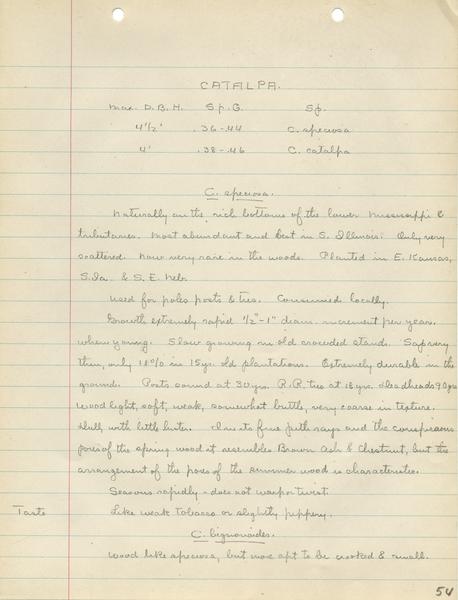 CATALPA.
Max. D.B.H. Sp.G. Sp.
4½' .36-.44 C. speciosa
4' .38-.46 C. catalpa
C. speciosa.
Naturally on the rich bottoms of the lower Mississippi &
tributaries. Most abundant and best in S. Illinois. Only very
scattered. Now very rare in the woods. Planted in E. Kansas,
S. Ia. & S.E. Neb.
Used for poles posts & ties. Consumed locally.
Growth extremely rapid ½"-1" diam. increment per year
when young. Slow growing in old crowded stands. Sap very
thin, only 18% in 15 yr. old plantations. Extremely durable in the
ground. Posts sound at 30 yrs. R.R. ties at 18 yrs. deadheads 90 yrs
Wood light, soft, weak, somewhat brittle, very coarse in texture.
Dull, with little luster. Due to fine pith rays and the conspicuous
pores of the spring wood it resembles Brown Ash & Chestnut, but the
arrangement of the pores of the summer wood is characteristic.
Seasons rapidly - does not warp or twist.
Taste Like weak tobacco or slightly peppery.
C. bignonioides.
Wood like speciosa, but more apt to be crooked & small.
54